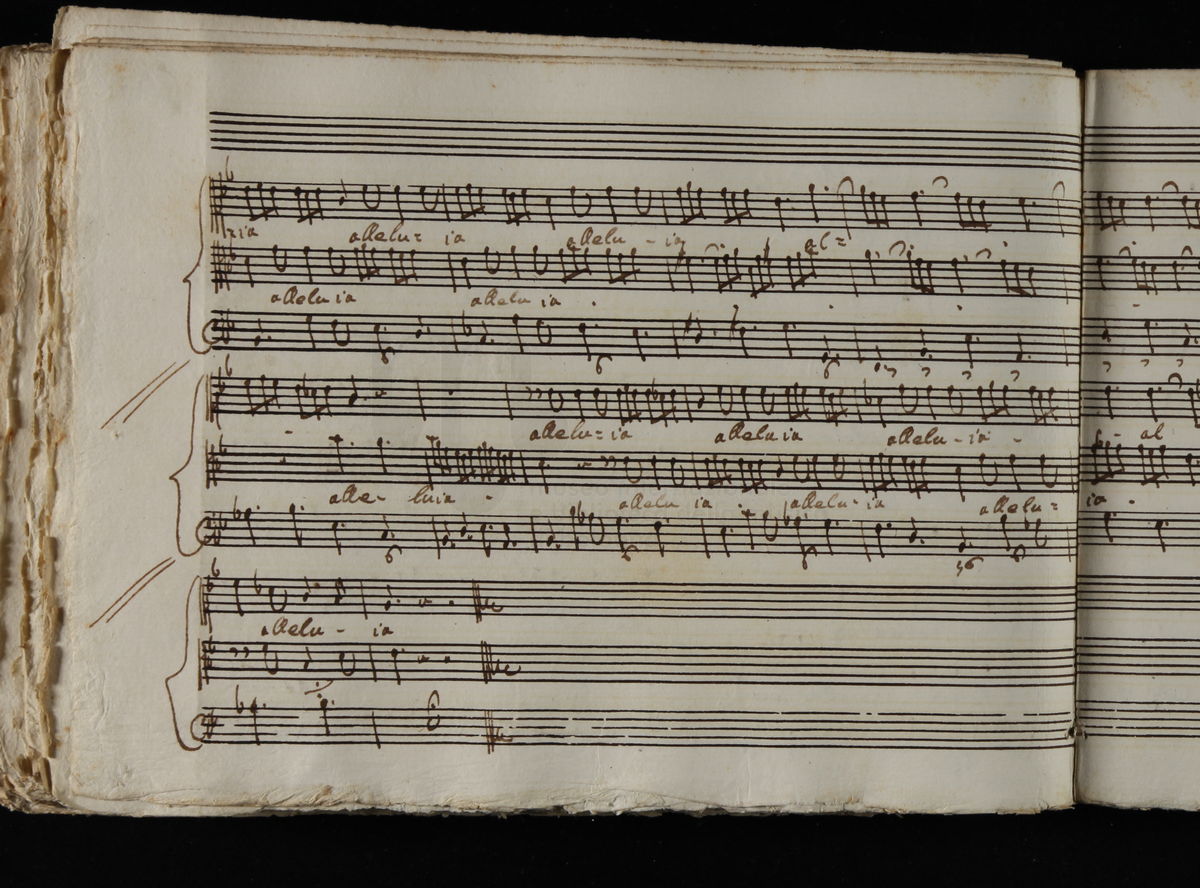 =ia allelu= ia allelu - ia al=
alleluia allelu ia
allelu=ia alleluia allelu-ia -
alle- luia - allelu ia allelu-ia allelu=
allelu- ia
- al
ia -